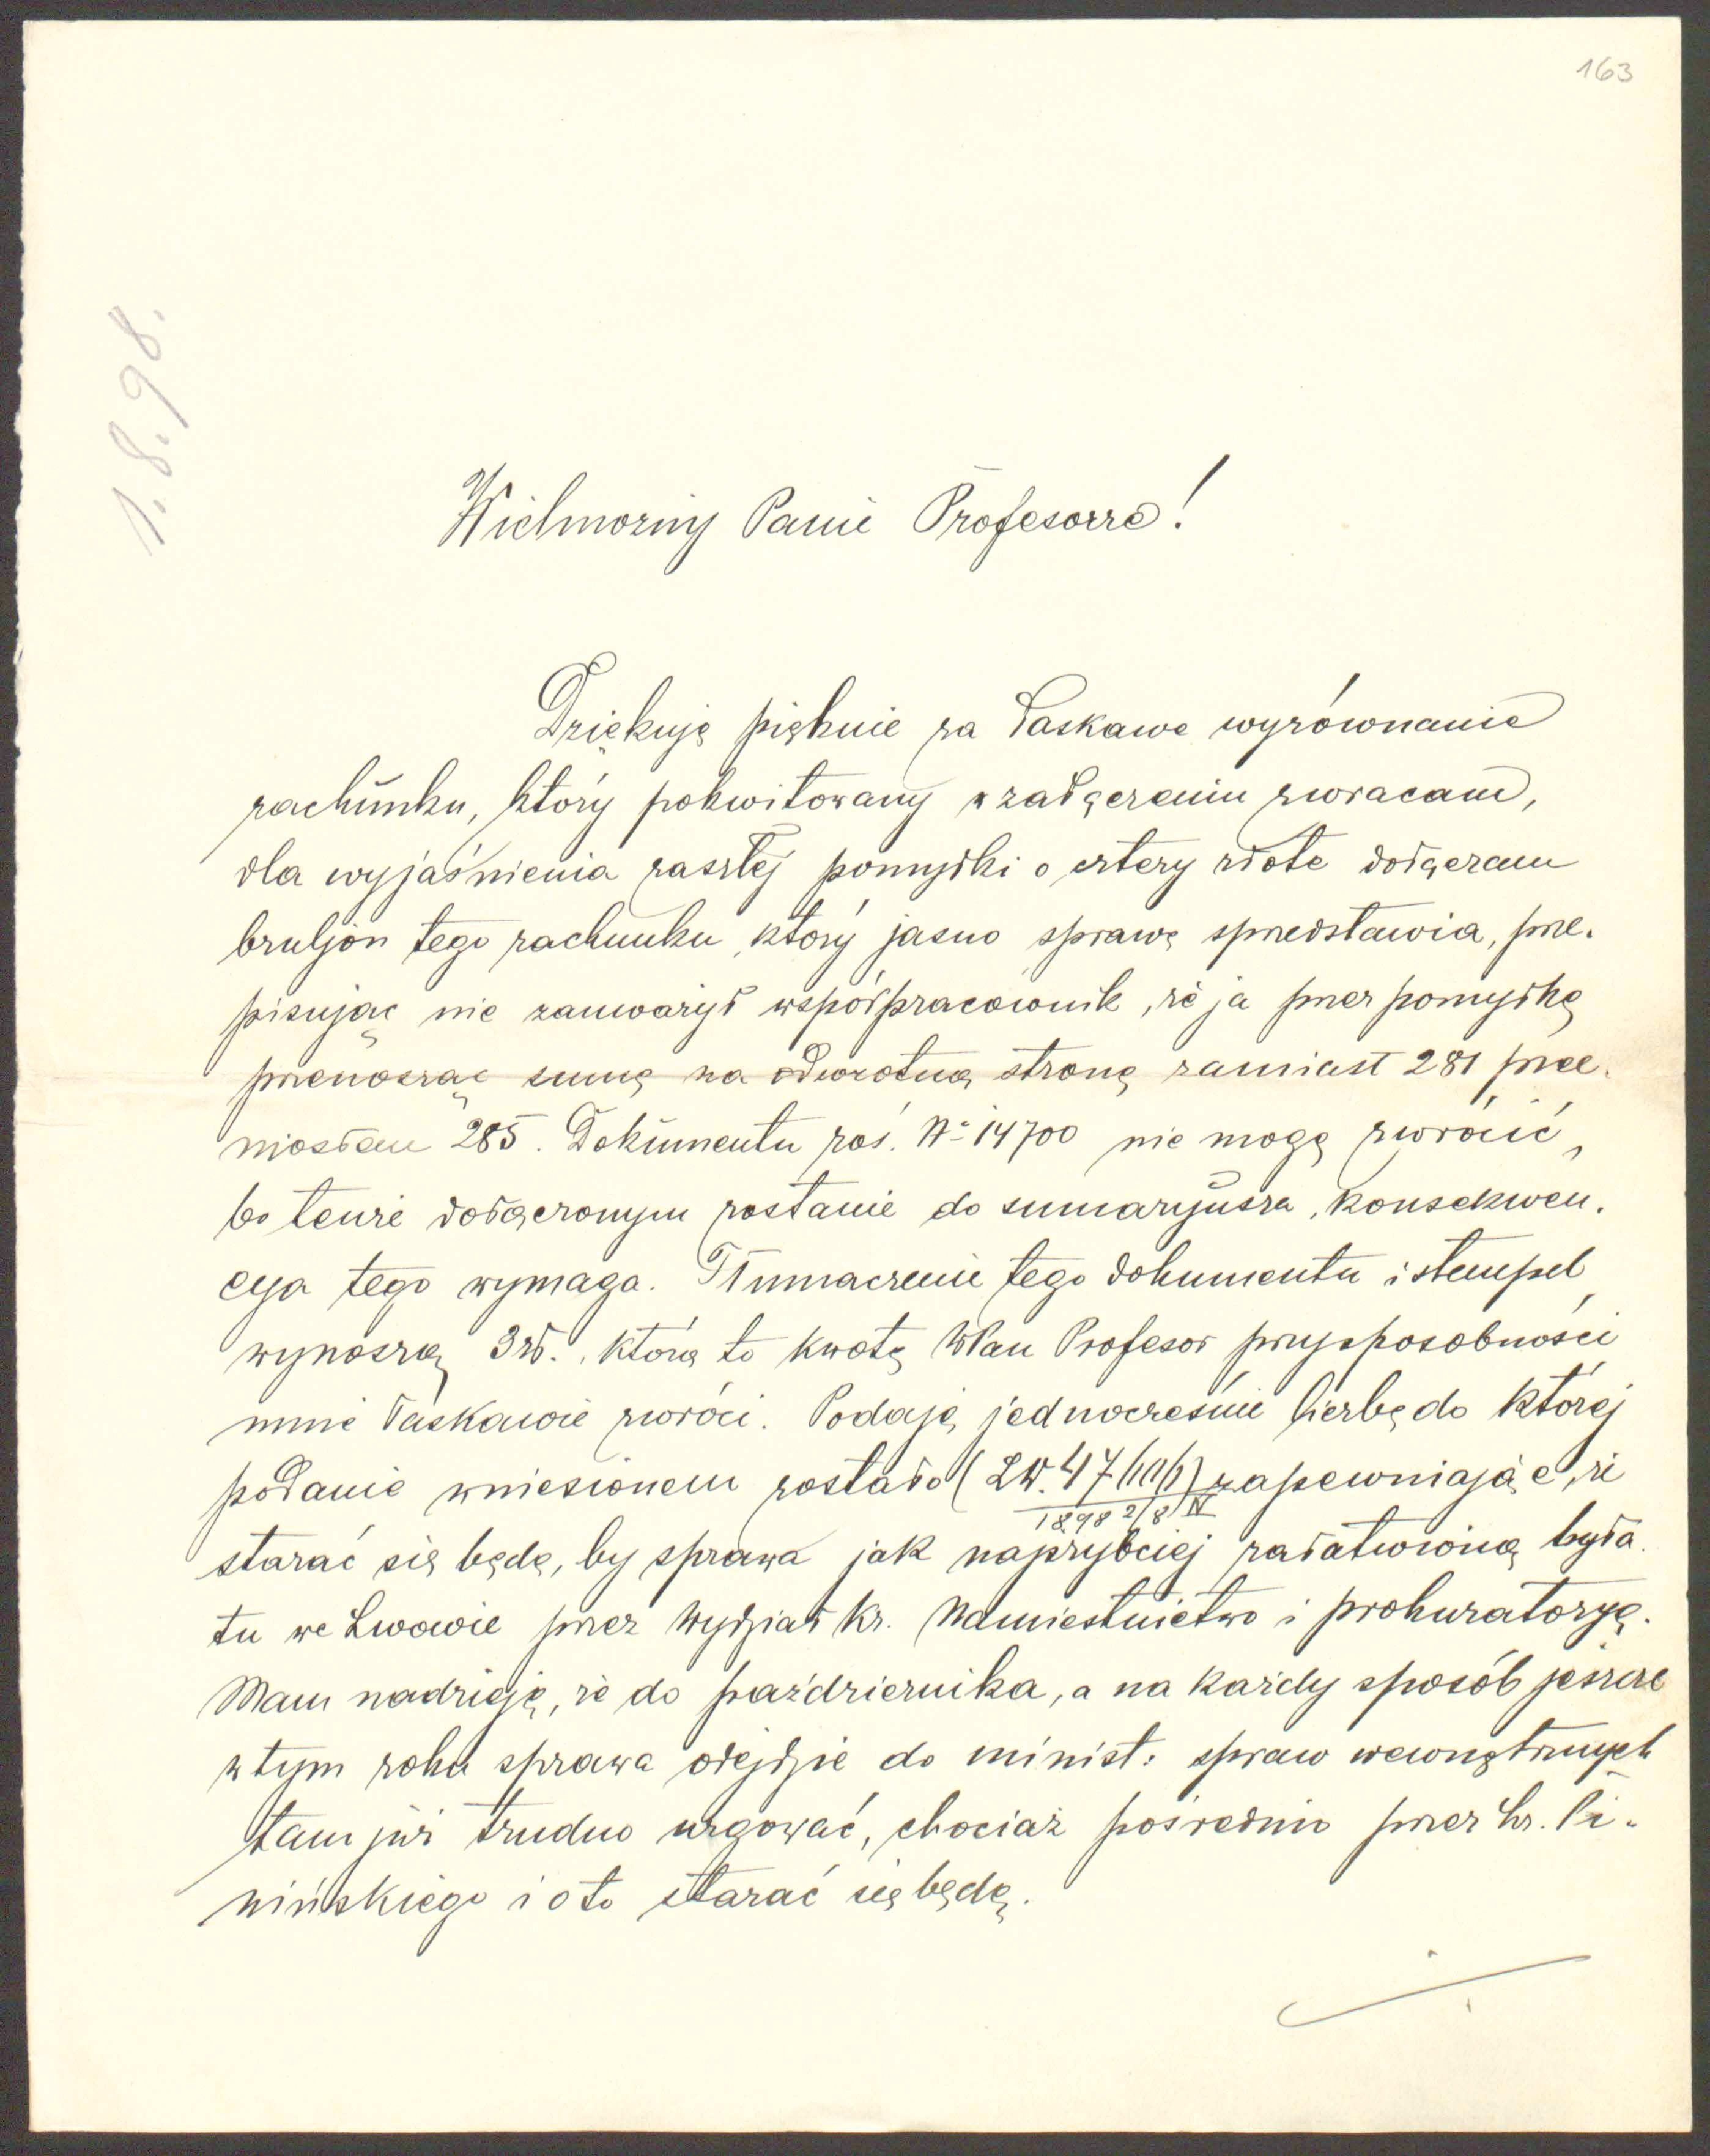 163
1.8.98.
Wielmożny Panie Profesorze!
Dziękuję pięknie za łaskawe wyrównanie
rachunku, który pokwitowany w załączeniu zwracam,
dla wyjaśnienia zaszłej pomyłki o cztery złote dołączam
bruljon tego rachunku, który jasno sprawę spredstawia, prze-
pisując nie zauważył współpracownik, że ja przez pomyłkę
przenosząc sumę na odwrotną stronę zamiast 281 prze-
niosłem 285. Dokumentu zaś No 14700 nie mogę zwrócić,
bo tenże dołączonym zostanie do sumaryusza, konsekwen-
cya tego wymaga. Tłumaczenie tego dokumentu i stempel
wynoszą 3 zł., którą to kwotę WPan Profesor przy sposobności
mnie łaskawie zwróci. Podaję jednocześnie liczbę do której
podanie wniesionem zostało (LW. 47 ) zapewniając, że
1898 2/8 IV
starać się będę, by sprawa jak najrybciej załatwioną była
tu we Lwowie przez Wydział kr. Namiestnictwo i prokuratoryę.
Mam nadzieję, że do października, a na każdy sposób jeszcze
w tym roku sprawa odejdzie do minist: spraw wewnętrznych
tam już trudno urgować, chociaż pośrednio przez hr. Pi-
nińskiego i o to starać się będę.